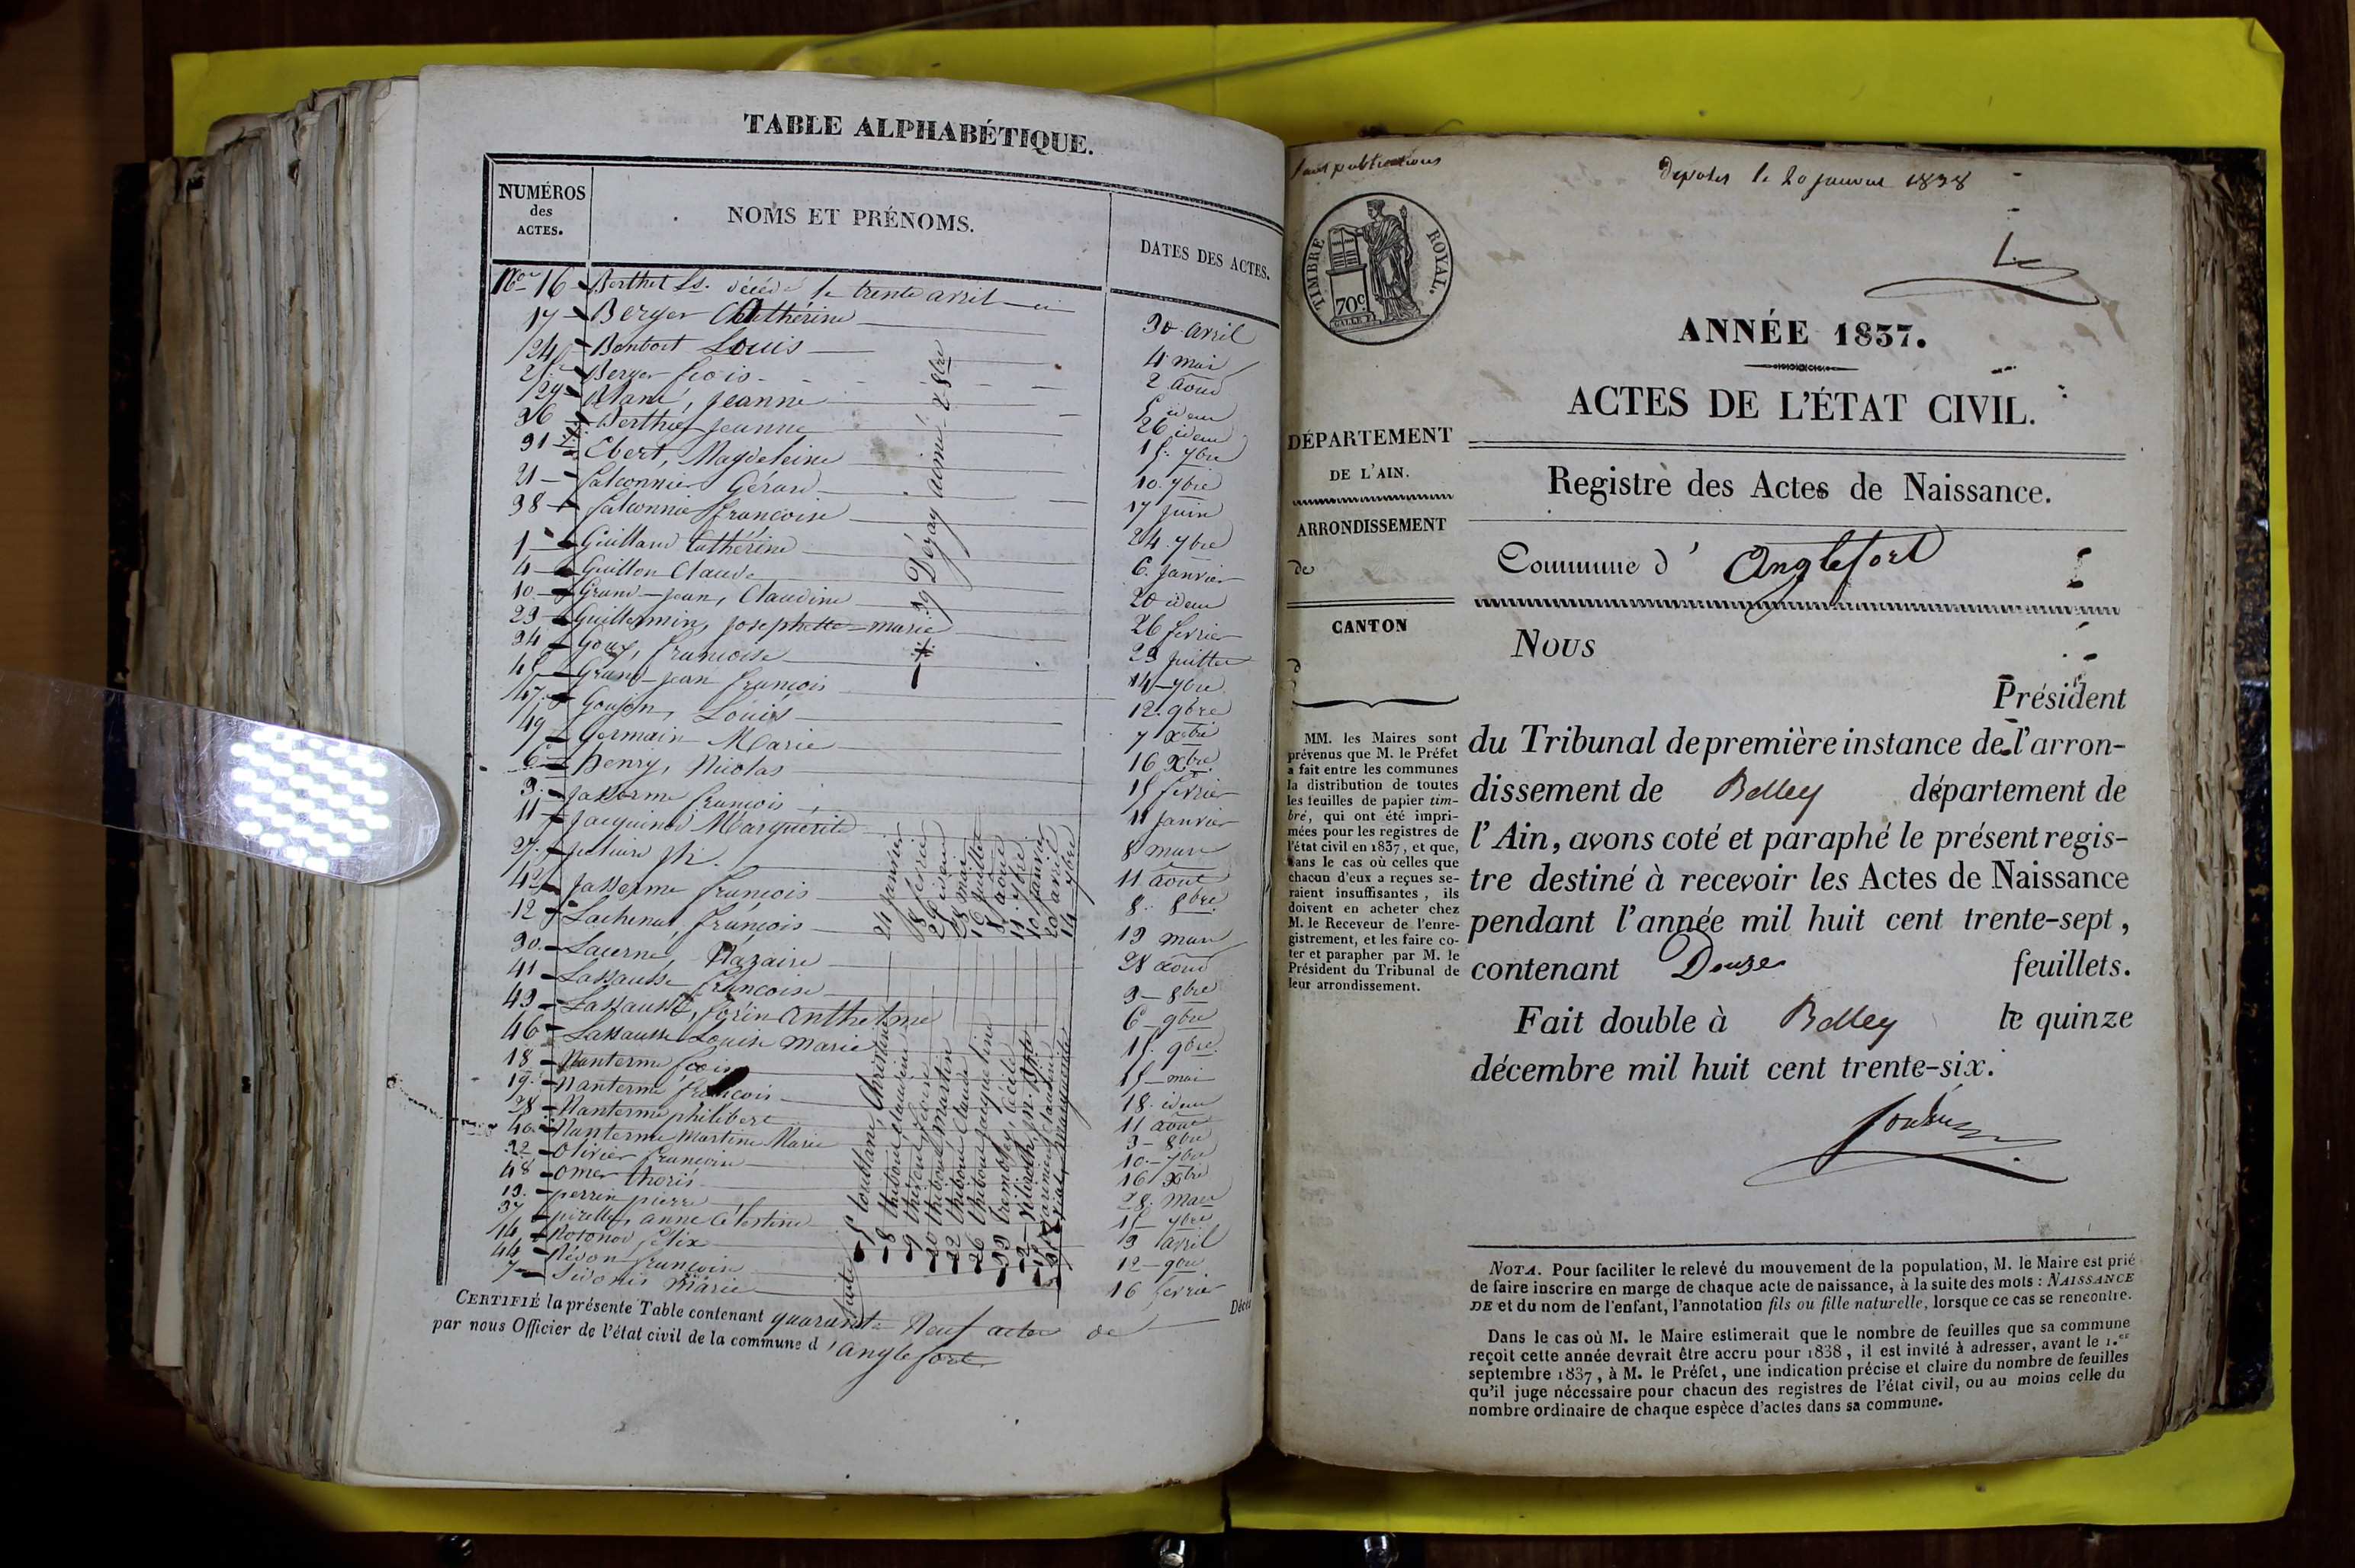 TABLE ALPHABÉTIQUE.
NUMÉROS des ACTES.
NOMS ET PRÉNOMS.
DATES DES ACTES.
16 Berthet décédé le trente avril 30 avril
17 Berger Cathérine 4 mai
24 Bontort Louis 2 aoud
Berger fcois idem
29 Jeanne 26 idem
36 Berthier Jeanne 15 7bre
31 Ebert, Magdeleine 10 7bre
21 Falconnier Gérard 17 Juin
38 Falconnier françoise 24 7bre
1 Guilland Cathérine 6 Janvier
4 Guillon Claude 20 idem
10 Grand-jean, Claudine 26 fevrier
23 Guillermin, Josephette-marie 23 Juillet
34 Gouy, francoise 14 7bre
45 Grand-jean françois 12 9bre
47 Goujon, Louis 7 Xbre
49 Germain Marie 16 Xbre
6 henry, Nicolas 15 fevrier
3 Jasserme françois 11 Janvier
11 Jacquinod Marguerite 8 mars
27 11 aout
42 Jasserme françois 8 8bre
12 Lachenal, françois 13 mars
30 Lacerne Nazaire 28 aoud
41 Lassausse françoise 3 8bre
43 Lassausse, Anthelme 6 9bre
46 Lassausse Louise Marie 15 9bre
18 Nanterme fcois 15 mai
19 Nanterme françois 18 idem
28 Nanterme philibert 11 aout
40 Nanterme Martine Marie 3 8bre
22 Olivier francoise 10 7bre
48 Omer thoris 16 Xbre
13 perrin pierre 28 mars
37 anne Célestine 15 7bre
14 felix 3 avril
44 françoise 12 9bre
7 Marie 16 fevrier
39 Dézay aimé 2 8bre
5 Toublanc, Christine 24 Janvier
8 thiboud claudine 18 fevrier
9 thiboud, 26 idem
20 thiboud Martin 28 mai
22 thiboud Claude 16 Juillet
26 thiboud Jacqueline 8 aoud
33 Tremoley, Cécile 11 7bre
2 10 Janvier
15 claudine 20 avril
35 vial, Marguerite 14 7bre
suite
CERTIFIÉ la présente Table contenant quarante Neuf actes de Décès
par nous Officier de l'état civil de la commune d'anglefort
sans publications
Déposés le 20 janvier 1838
TIMBRE ROYAL.
70c
ANNÉE 1837.
ACTES DE L'ÉTAT CIVIL.
DÉPARTEMENT
DE L'AIN.
ARRONDISSEMENT
de
CANTON
d
MM. les Maires sont
prévenus que M. le Préfet
a fait entre les communes
la distribution de toutes
les feuilles de papier tim-
bré, qui ont été impri-
mées pour les registres de
l'état civil en 1837, et que,
dans le cas où celles que
chacun d'eux a reçues se-
raient insuffisantes, ils
doivent en acheter chez
M. le Receveur de l'enre-
gistrement, et les faire co-
ter et parapher par M. le
Président du Tribunal de
leur arrondissement.
Registre des Actes de Naissance.
Commune d'Anglefort
Nous
Président
du Tribunal de première instance de l'arron-
dissement de Belley département de
l'Ain, avons coté et paraphé le présent regis-
tre destiné à recevoir les Actes de Naissance
pendant l'année mil huit cent trente-sept,
contenant Douze feuillets.
Fait double à Belley le quinze
décembre mil huit cent trente-six.
NOTA. Pour faciliter le relevé du mouvement de la population, M. le Maire est prié
de faire inscrire en marge de chaque acte de naissance, à la suite des mots : NAISSANCE
DE et du nom de l'enfant, l'annotation fils ou fille naturelle, lorsque ce cas se rencontre.
Dans le cas où M. le Maire estimerait que le nombre de feuilles que sa commune
reçoit cette année devrait être accru pour 1838, il est invité à adresser, avant le 1.er
septembre 1837, à M. le Préfet, une indication précise et claire du nombre de feuilles
qu'il juge nécessaire pour chacun des registres de l'état civil, ou au moins celle du
nombre ordinaire de chaque espèce d'actes dans sa commune.